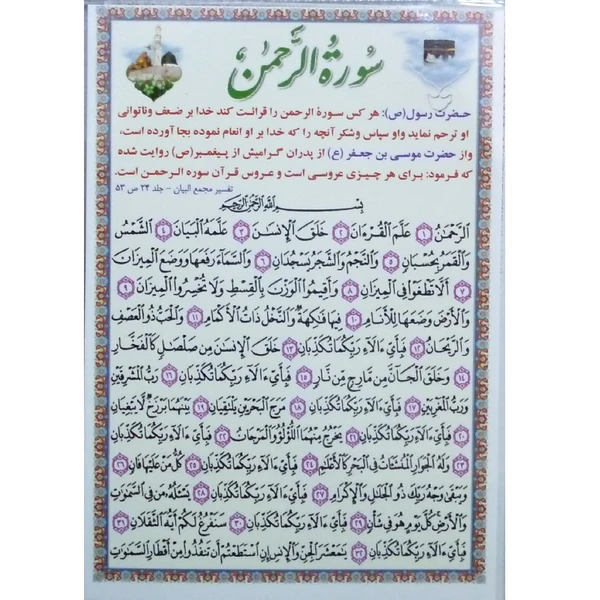 سورة الرحمن
حضرت رسول(ص): هر کس سورۀ الرحمن را قرائت کند خدا بر ضعف وناتوانی
او ترحم نماید واو سپاس وشکر آنچه را که خدا بر او انعام نموده بجا آورده است،
واز حضرت موسی بن جعفر (ع) از پدران گرامیش از پیغمبر(ص) روایت شده
که فرمود: برای هر چیزی عروسی است و عروس قرآن سوره الرحمن است.
تفسیر مجمع البیان - جلد ۲۴ ص ۵۳
بِسْمِ اللَّهِ الرَّحْمَنِ الرَّحِيمِ
الرَّحْمَٰنُ ﴿١﴾ عَلَّمَ الْقُرْءَانَ ﴿٢﴾ خَلَقَ الْإِنسَٰنَ ﴿٣﴾ عَلَّمَهُ الْبَيَانَ ﴿٤﴾ الشَّمْسُ
وَالْقَمَرُ بِحُسْبَانٍ ﴿٥﴾ وَالنَّجْمُ وَالشَّجَرُ يَسْجُدَانِ ﴿٦﴾ وَالسَّمَاءَ رَفَعَهَا وَوَضَعَ الْمِيزَانَ
﴿٧﴾ أَلَّا تَطْغَوْا فِي الْمِيزَانِ ﴿٨﴾ وَأَقِيمُوا الْوَزْنَ بِالْقِسْطِ وَلَا تُخْسِرُوا الْمِيزَانَ ﴿٩﴾
وَالْأَرْضَ وَضَعَهَا لِلْأَنَامِ ﴿١٠﴾ فِيهَا فَٰكِهَةٌ وَالنَّخْلُ ذَاتُ الْأَكْمَامِ ﴿١١﴾ وَالْحَبُّ ذُو الْعَصْفِ
وَالرَّيْحَانُ ﴿١٢﴾ فَبِأَيِّ ءَالَآءِ رَبِّكُمَا تُكَذِّبَانِ ﴿١٣﴾ خَلَقَ الْإِنسَٰنَ مِن صَلْصَٰلٍ كَالْفَخَّارِ
﴿١٤﴾ وَخَلَقَ الْجَآنَّ مِن مَّارِجٍ مِّن نَّارٍ ﴿١٥﴾ فَبِأَيِّ ءَالَآءِ رَبِّكُمَا تُكَذِّبَانِ ﴿١٦﴾ رَبُّ الْمَشْرِقَيْنِ
وَرَبُّ الْمَغْرِبَيْنِ ﴿١٧﴾ فَبِأَيِّ ءَالَآءِ رَبِّكُمَا تُكَذِّبَانِ ﴿١٨﴾ مَرَجَ الْبَحْرَيْنِ يَلْتَقِيَانِ ﴿١٩﴾ بَيْنَهُمَا بَرْزَخٌ لَّا يَبْغِيَانِ
﴿٢٠﴾ فَبِأَيِّ ءَالَآءِ رَبِّكُمَا تُكَذِّبَانِ ﴿٢١﴾ يَخْرُجُ مِنْهُمَا اللُّؤْلُؤُ وَالْمَرْجَانُ ﴿٢٢﴾ فَبِأَيِّ ءَالَآءِ رَبِّكُمَا تُكَذِّبَانِ
﴿٢٣﴾ وَلَهُ الْجَوَارِ الْمُنشَئَاتُ فِي الْبَحْرِ كَالْأَعْلَٰمِ ﴿٢٤﴾ فَبِأَيِّ ءَالَآءِ رَبِّكُمَا تُكَذِّبَانِ ﴿٢٥﴾ كُلُّ مَنْ عَلَيْهَا فَانٍ ﴿٢٦﴾
وَيَبْقَىٰ وَجْهُ رَبِّكَ ذُو الْجَلَٰلِ وَالْإِكْرَامِ ﴿٢٧﴾ فَبِأَيِّ ءَالَآءِ رَبِّكُمَا تُكَذِّبَانِ ﴿٢٨﴾ يَسْـَٔلُهُ مَن فِي السَّمَٰوَٰتِ
وَالْأَرْضِ كُلَّ يَوْمٍ هُوَ فِي شَأْنٍ ﴿٢٩﴾ فَبِأَيِّ ءَالَآءِ رَبِّكُمَا تُكَذِّبَانِ ﴿٣٠﴾ سَنَفْرُغُ لَكُمْ أَيُّهَ الثَّقَلَانِ ﴿٣١﴾
فَبِأَيِّ ءَالَآءِ رَبِّكُمَا تُكَذِّبَانِ ﴿٣٢﴾ يَٰمَعْشَرَ الْجِنِّ وَالْإِنسِ إِنِ اسْتَطَعْتُمْ أَن تَنفُذُوا مِنْ أَقْطَارِ السَّمَٰوَٰتِ